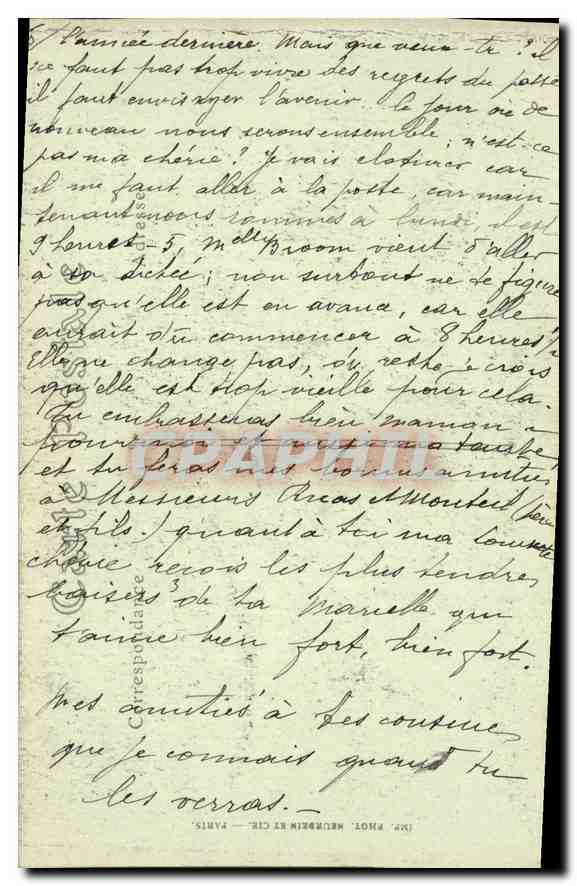 l'année dernière. Mais que veux-tu ? il
ne faut pas trop vivre des regrets du passé
il faut envisager l'avenir. le jour où de
nouveau nous serons ensemble, n'est-ce
pas ma chérie ? Je vais cloturer car
il me faut aller à la poste car main-
tenant nous sommes à lundi, il est
9 heures - 5, Melle Broom vient d'aller
à sa ; non surtout ne te figure
pas qu'elle est en avance, car elle
aurait dû commencer à 8 heures 1/2
Elle ne change pas, du reste je crois
qu'elle est trop vieille pour cela.
Tu embrasseras bien maman
pour moi et aussi ma tante
et tu feras mes bonnes amitiés
à Messieurs et Monteil (père
et fils.) quant à toi ma Louisette
chérie reçois les plus tendres
baisers de ta Marcelle qui
t'aime bien fort, bien fort.
Mes amitiés à tes cousines
que je connais quand tu
les verras. -
Carte postale
Correspondance
Adresse
CPAPHIL
IMP. PHOT. NEURDEIN ET CIE. — PARIS.